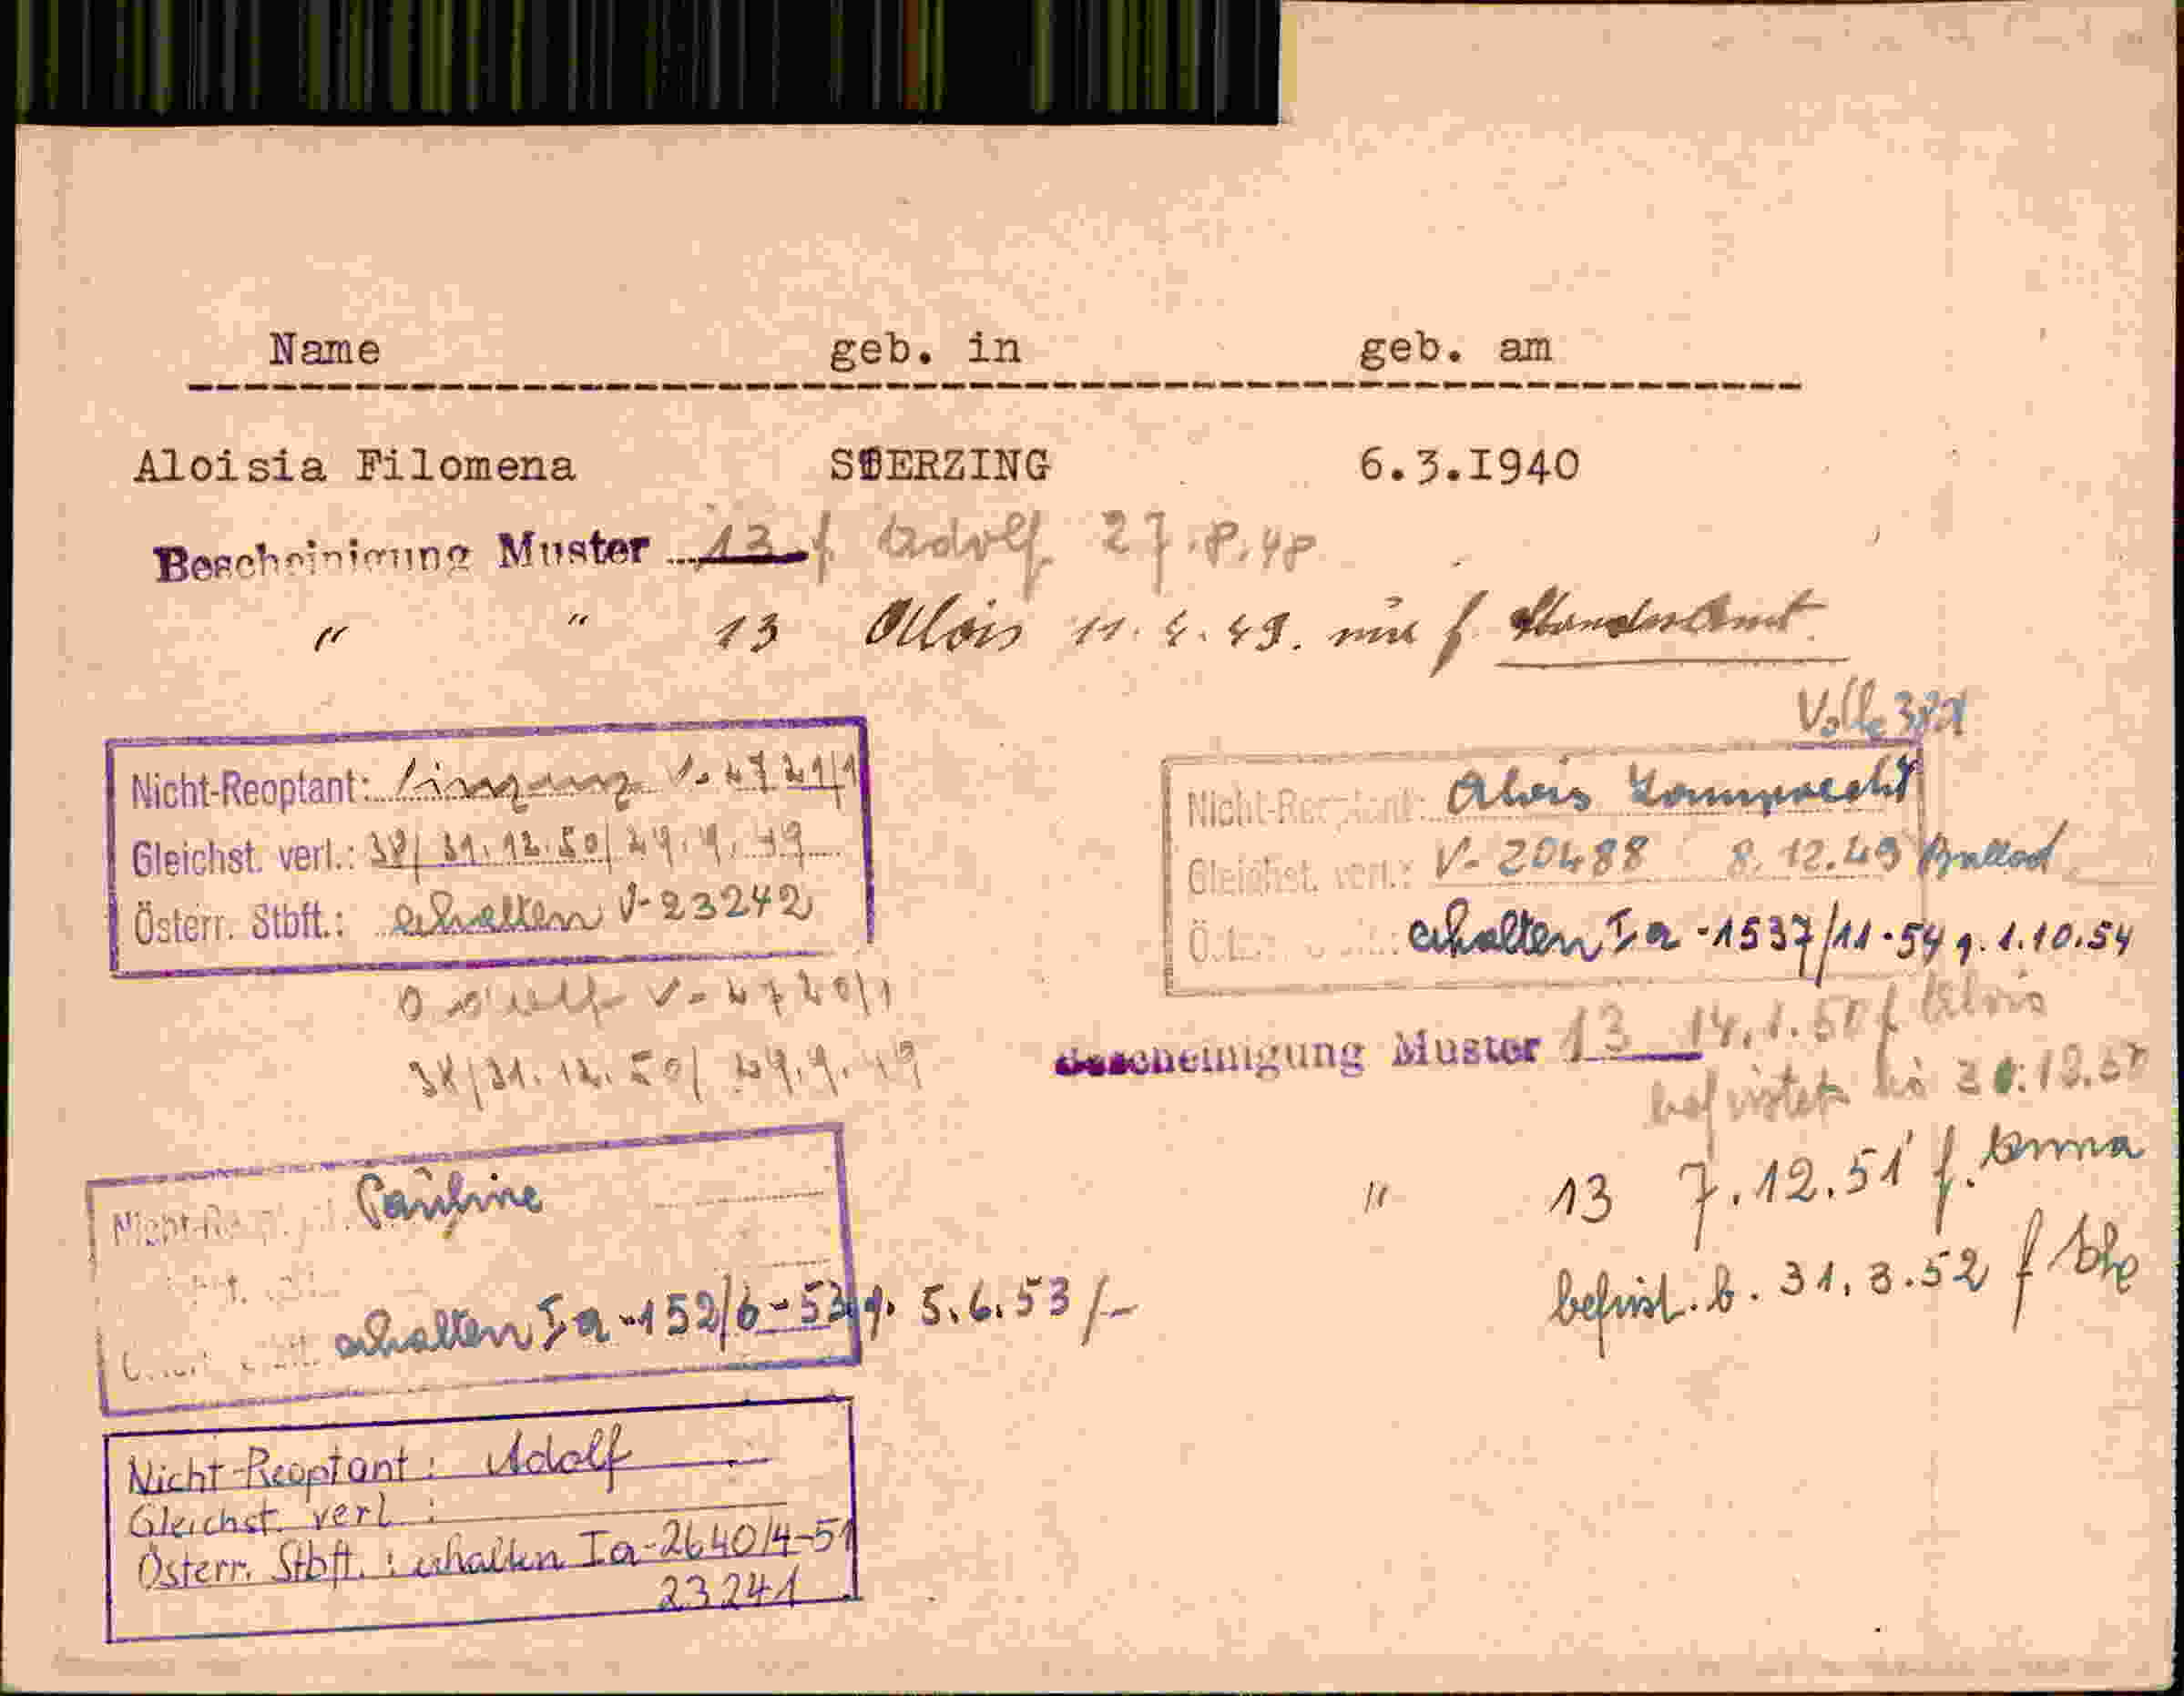 Name geb. in geb. am
Aloisia Filomena STERZING 6.3.I940
Bescheinigung Muster 13 f. Adolf 27.8.48
" " 13 Alois 11.4.49. nur f. Standesamt.
Nicht-Reoptant: V-4721/1
Gleichst. verl.: 38/31.12.50/29.9.49
Österr. Stbft.: erhalten V-23242
Adolf V-4720/1
38/31.12.50/29.9.49
Nicht-Reoptant: Alois
Gleichst. verl.: V-20488 8.12.49
erhalten Ia-1537/11-54 g. 1.10.54
Bescheinigung Muster 13 14.1.50 f Alois
befristet bis
" 13 7.12.51 f. Anna
befrist. b. 31.3.52 f
Nicht-Reoptant: Pauline
erhalten Ia-152/6-53 g. 5.6.53
Nicht-Reoptant: Adolf
Gleichst. verl.:
Österr. Stbft.: erhalten Ia-2640/4-51
23241